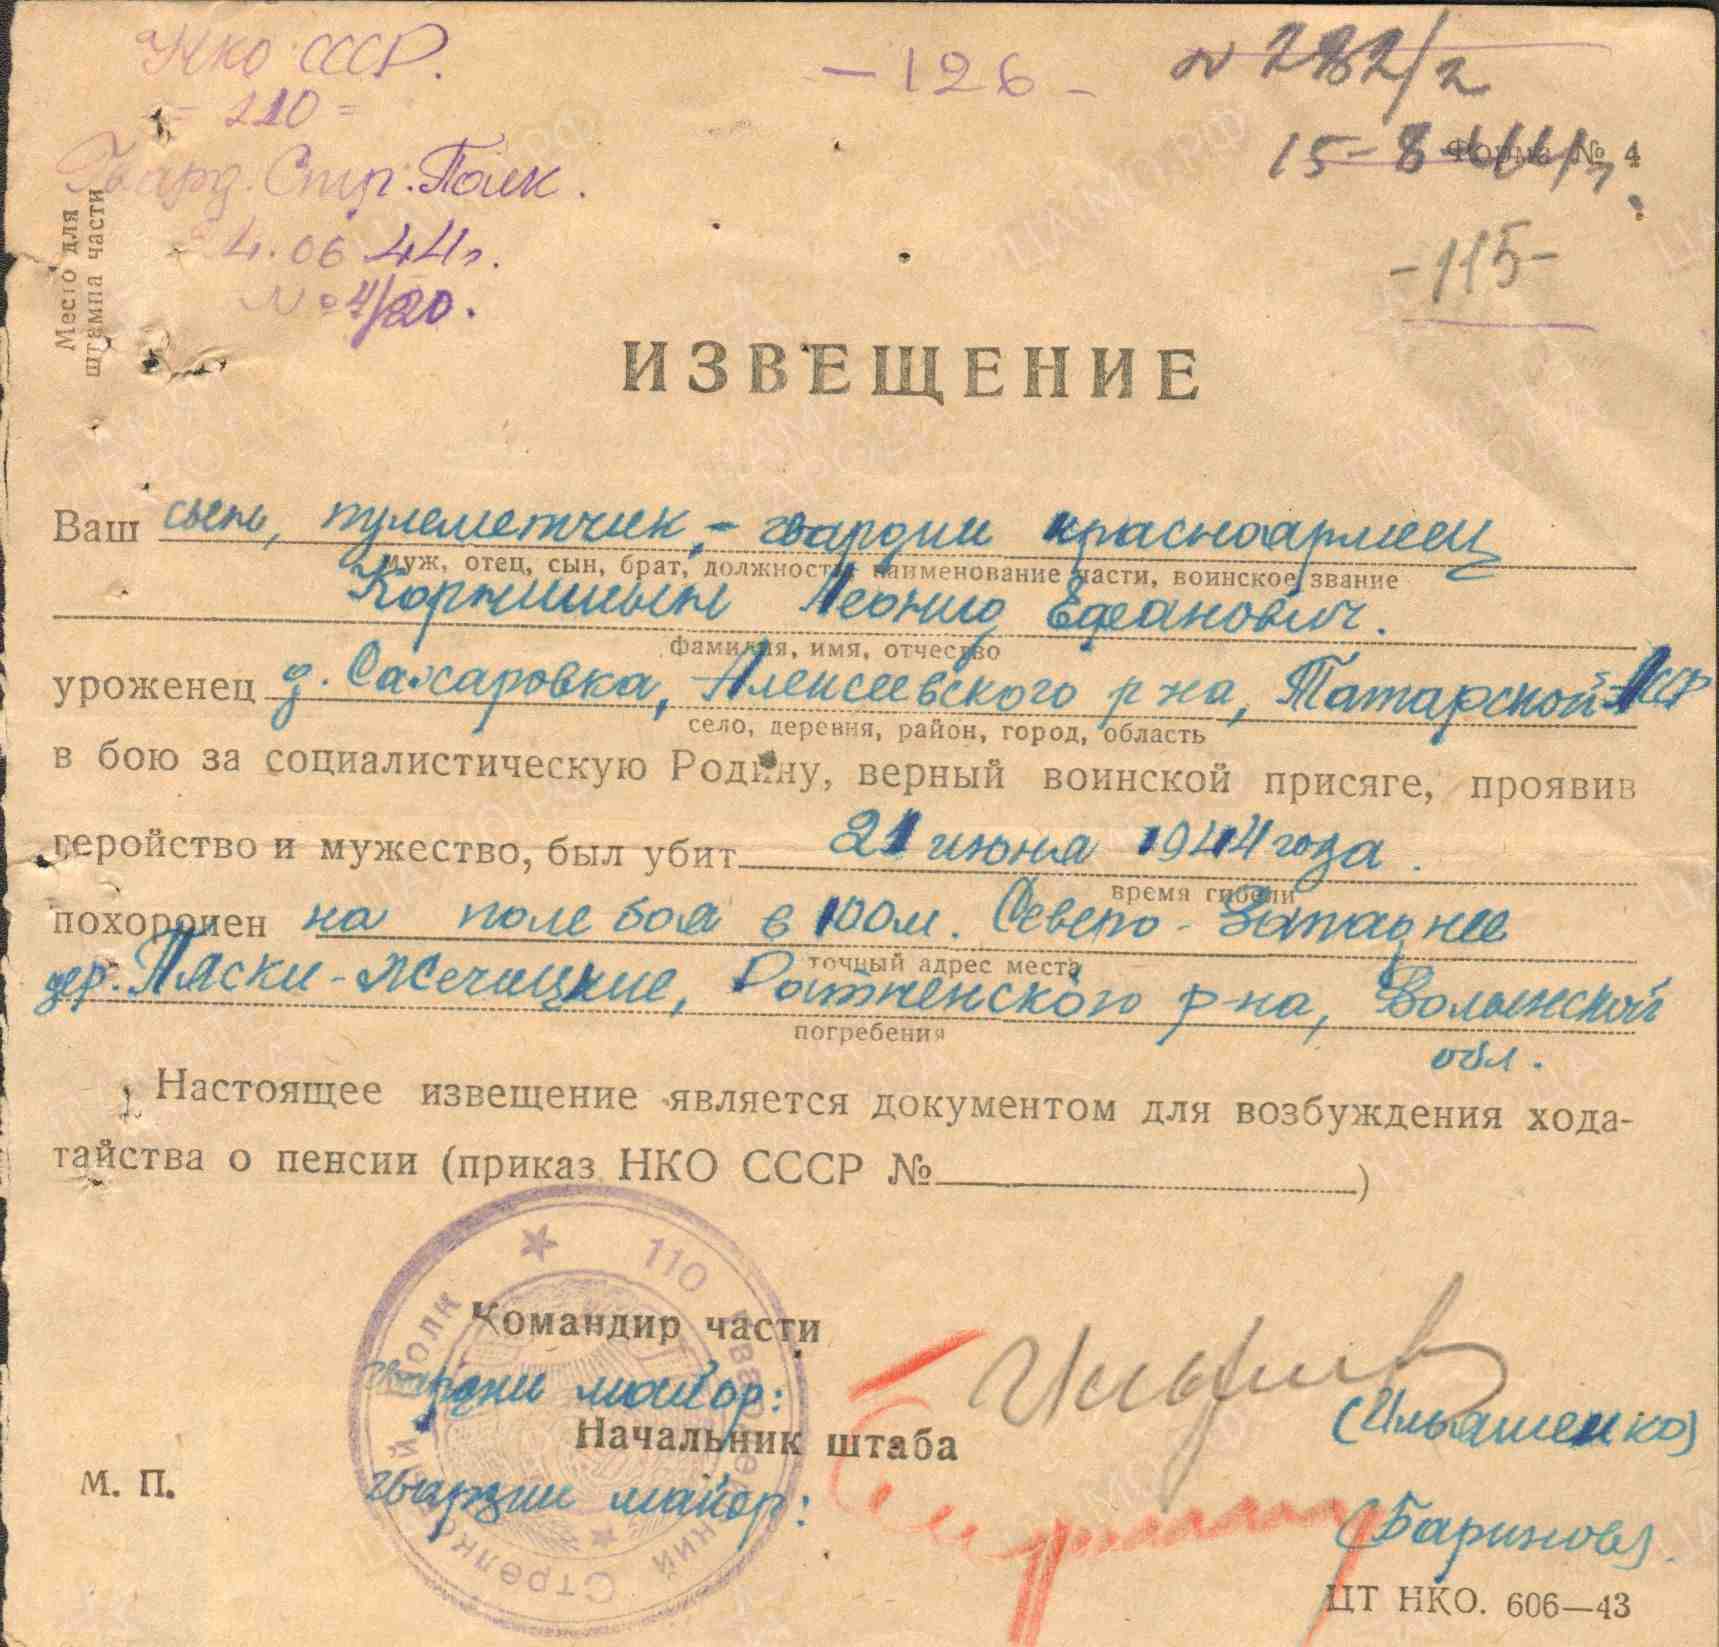 НКО СССР.
= 110 =
Гвард. Стр. Полк.
4.06 44 г.
№ 4/20.
Место для
штемпа части
- 126 -
№ 282/2
15-8-44 г.
Форма № 4
-115-
ИЗВЕЩЕНИЕ
Ваш сын, пулеметчик, - гвардии красноармеец
муж, отец, сын, брат, должность, наименование части, воинское звание
Леонид
фамилия, имя, отчество
уроженец д. Сахаровка, Алексеевского р-на, Татарской АССР
село, деревня, район, город, область
в бою за социалистическую Родину, верный воинской присяге, проявив
геройство и мужество, был убит 21 июня 1944 года.
время гибели
похоронен на поле боя в 100 м. Северо-Западнее
точный адрес места
дер. Пяски-Жечицкие, Ратненского р-на, Волынской
погребения
обл.
Настоящее извещение является документом для возбуждения хода-
тайства о пенсии (приказ НКО СССР № )
110 Гвардейский Стрелковый полк
Командир части
гвардии майор: (Ильяшенко)
Начальник штаба
М. П.
гвардии майор: (Баринов).
ЦТ НКО. 606—43